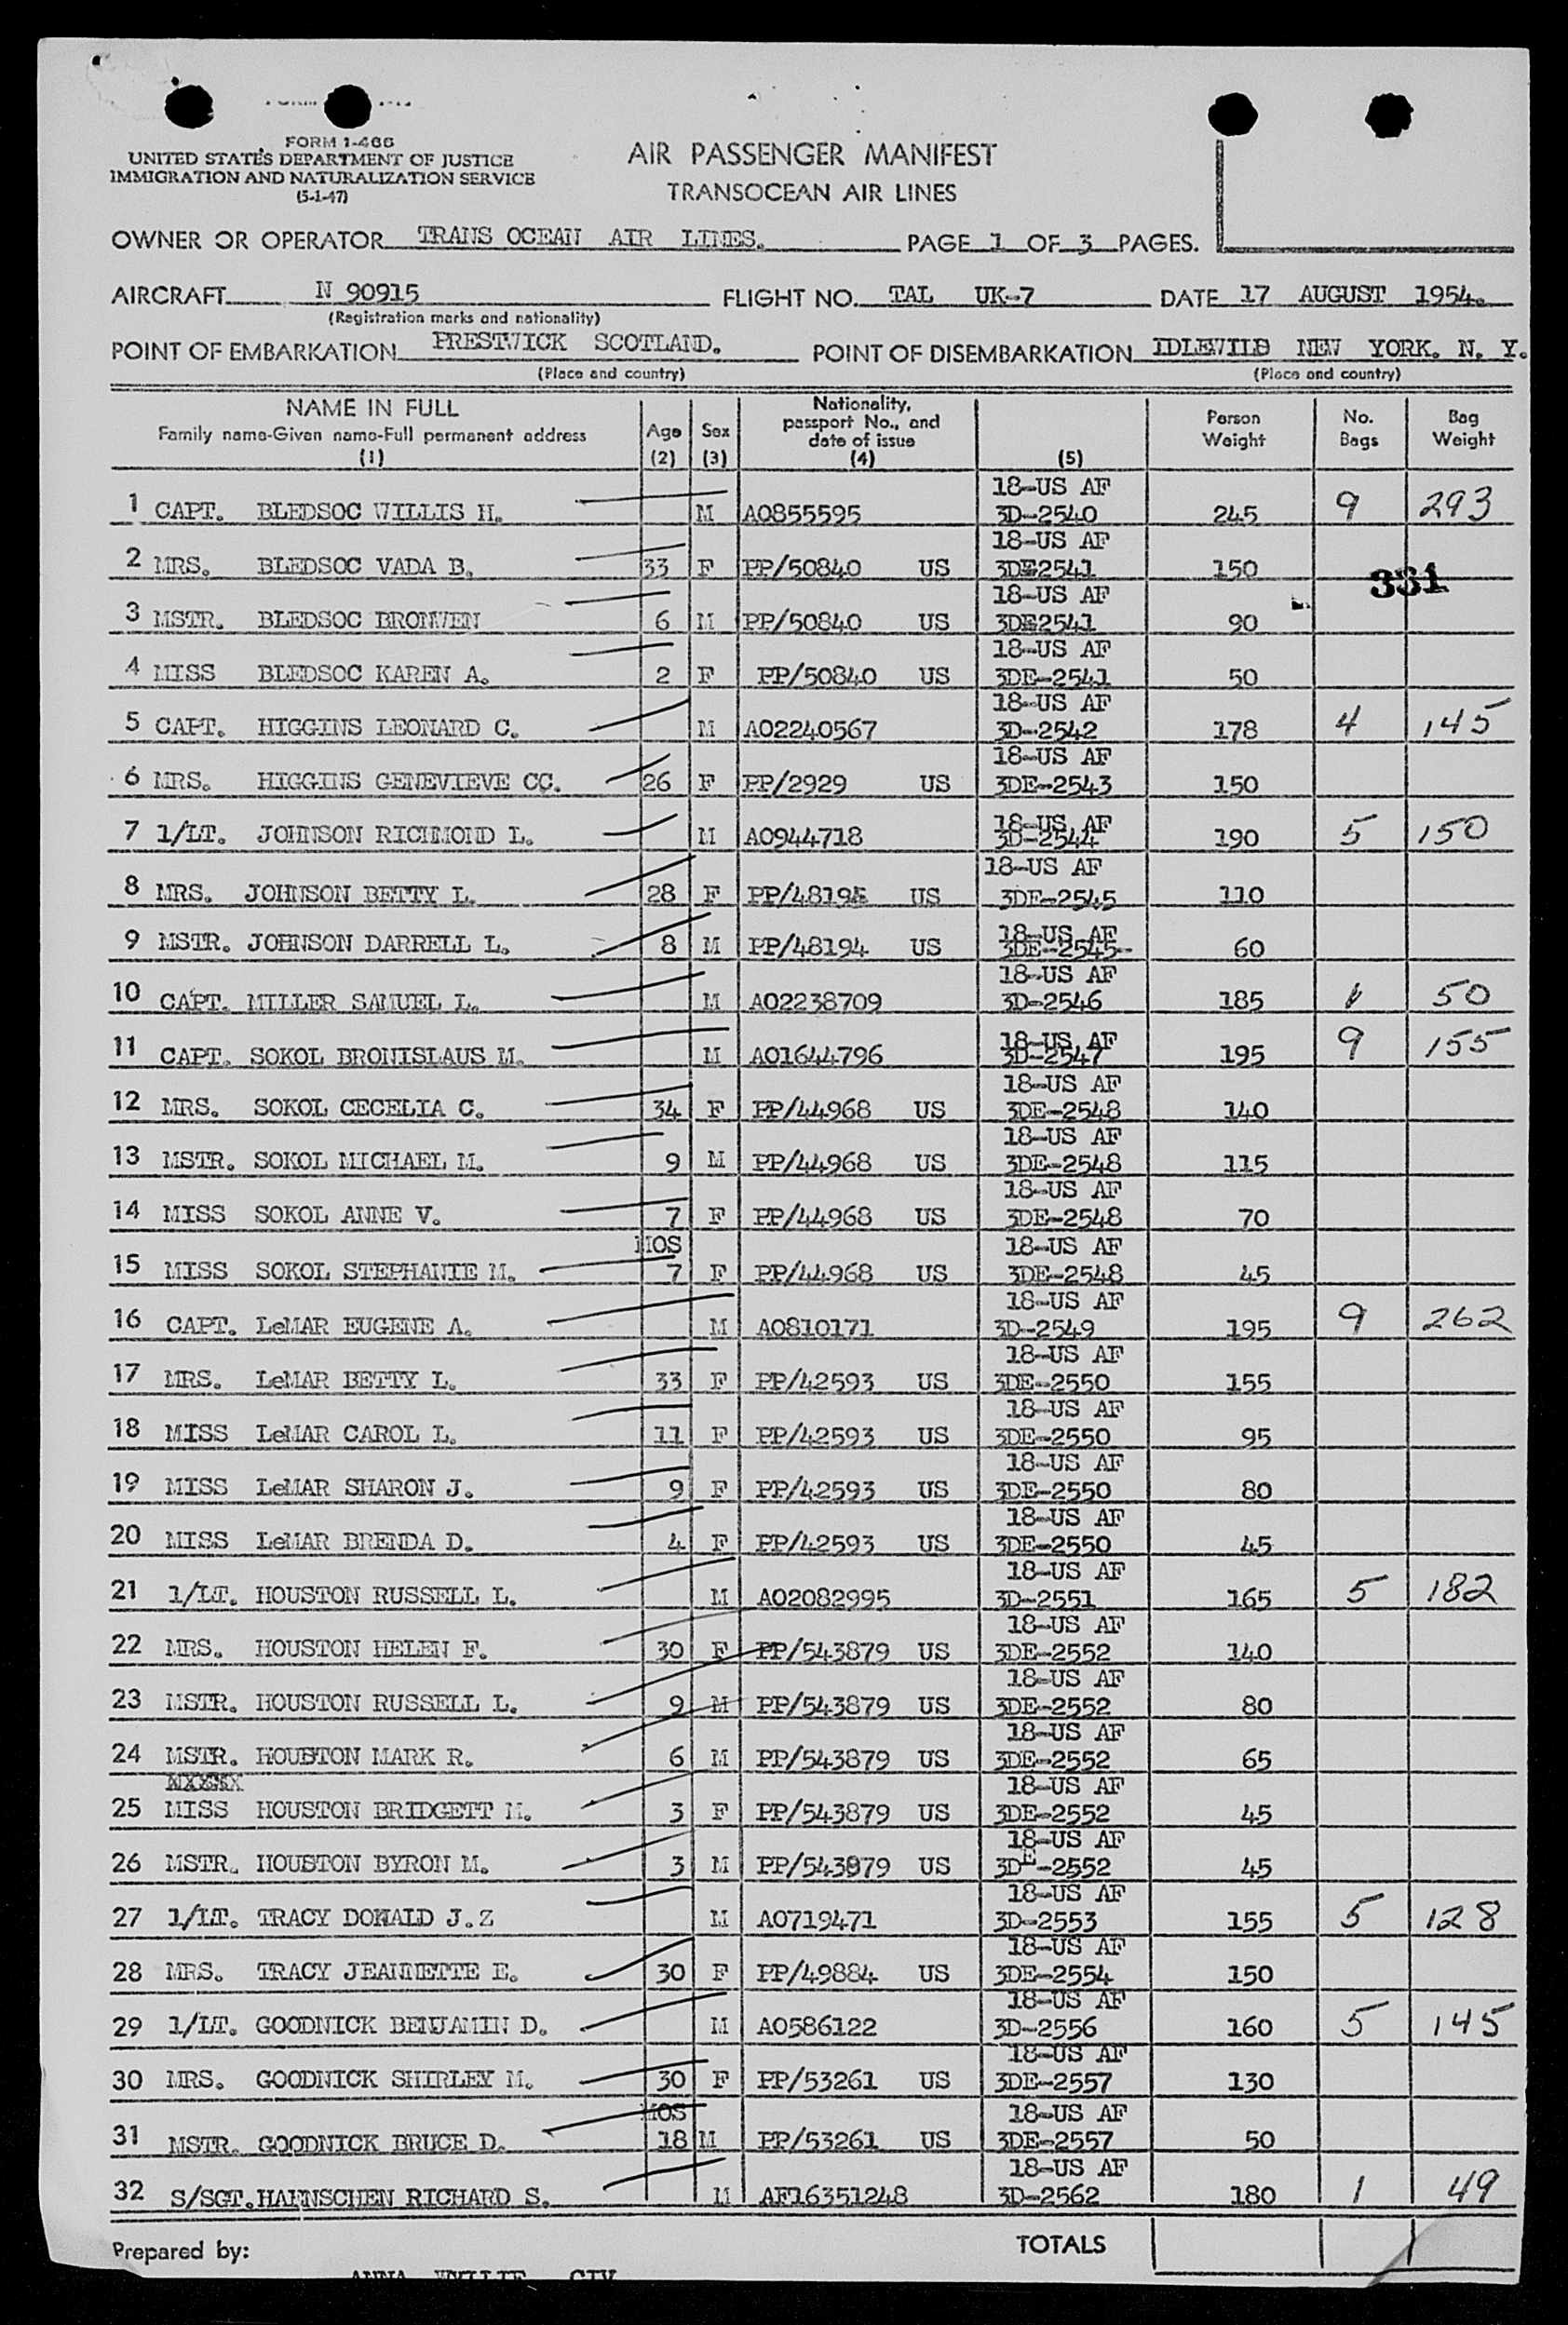 FORM I-466
UNITED STATES DEPARTMENT OF JUSTICE
IMMIGRATION AND NATURALIZATION SERVICE
(5-1-47)
AIR PASSENGER MANIFEST
TRANSOCEAN AIR LINES
OWNER OR OPERATOR TRANS OCEAN AIR LINES. PAGE 1 OF 3 PAGES.
AIRCRAFT N 90915 FLIGHT NO. TAL UK-7 DATE 17 AUGUST 1954.
(Registration marks and nationality)
POINT OF EMBARKATION PRESTWICK SCOTLAND. POINT OF DISEMBARKATION IDLEWILD NEW YORK. N. Y.
(Place and country) (Place and country)
NAME IN FULL
Family name-Given name-Full permanent address
(1)
Age
(2)
Sex
(3)
Nationality,
passport No., and
date of issue
(4)
(5)
Person
Weight
No.
Bags
Bag
Weight
18-US AF
1 CAPT. BLEDSOC WILLIS H. M AO855595 3D-2540 245 9 293
18-US AF
2 MRS. BLEDSOC VADA B. 33 F PP/50840 US 3DE2541 150
331
18-US AF
3 MSTR. BLEDSOC BRONWEN 6 M PP/50840 US 3DE2541 90
18-US AF
4 MISS BLEDSOC KAREN A. 2 F PP/50840 US 3DE-2541 50
18-US AF
5 CAPT. HIGGINS LEONARD C. M AO2240567 3D-2542 178 4 145
18-US AF
6 MRS. HIGGINS GENEVIEVE CC. 26 F PP/2929 US 3DE-2543 150
18-US AF
7 1/LT. JOHNSON RICHMOND L. M AO944718 3D-2544 190 5 150
18-US AF
8 MRS. JOHNSON BETTY L. 28 F PP/48194 US 3DE-2545 110
18-US AF
9 MSTR. JOHNSON DARRELL L. 8 M PP/48194 US 3DE-2545- 60
18-US AF
10 CAPT. MILLER SAMUEL L. M AO2238709 3D-2546 185 1 50
18-US AF
11 CAPT. SOKOL BRONISLAUS M. M AO1644796 3D-2547 195 9 155
18-US AF
12 MRS. SOKOL CECELIA C. 34 F PP/44968 US 3DE-2548 140
18-US AF
13 MSTR. SOKOL MICHAEL M. 9 M PP/44968 US 3DE-2548 115
18-US AF
14 MISS SOKOL ANNE V. 7 F PP/44968 US 3DE-2548 70
MOS 18-US AF
15 MISS SOKOL STEPHANIE M. 7 F PP/44968 US 3DE-2548 45
18-US AF
16 CAPT. LeMAR EUGENE A. M AO810171 3D-2549 195 9 262
18-US AF
17 MRS. LeMAR BETTY L. 33 F PP/42593 US 3DE-2550 155
18-US AF
18 MISS LeMAR CAROL L. 11 F PP/42593 US 3DE-2550 95
18-US AF
19 MISS LeMAR SHARON J. 9 F PP/42593 US 3DE-2550 80
18-US AF
20 MISS LeMAR BRENDA D. 4 F PP/42593 US 3DE-2550 45
18-US AF
21 1/LT. HOUSTON RUSSELL L. M AO2082995 3D-2551 165 5 182
18-US AF
22 MRS. HOUSTON HELEN F. 30 F PP/543879 US 3DE-2552 140
18-US AF
23 MSTR. HOUSTON RUSSELL L. 9 M PP/543879 US 3DE-2552 80
18-US AF
24 MSTR. HOUSTON MARK R. 6 M PP/543879 US 3DE-2552 65
18-US AF
25 MISS HOUSTON BRIDGETT M. 3 F PP/543879 US 3DE-2552 45
18-US AF
26 MSTR. HOUSTON BYRON M. 3 M PP/543879 US 3DE-2552 45
18-US AF
27 1/LT. TRACY DONALD J.Z M AO719471 3D-2553 155 5 128
18-US AF
28 MRS. TRACY JEANNETTE E. 30 F PP/49884 US 3DE-2554 150
18-US AF
29 1/LT. GOODNICK BENJAMIN D. M AO586122 3D-2556 160 5 145
18-US AF
30 MRS. GOODNICK SHIRLEY M. 30 F PP/53261 US 3DE-2557 130
MOS 18-US AF
31 MSTR. GOODNICK BRUCE D. 18 M PP/53261 US 3DE-2557 50
18-US AF
32 S/SGT. HAHNSCHEN RICHARD S. M AF16351248 3D-2562 180 1 49
Prepared by: TOTALS